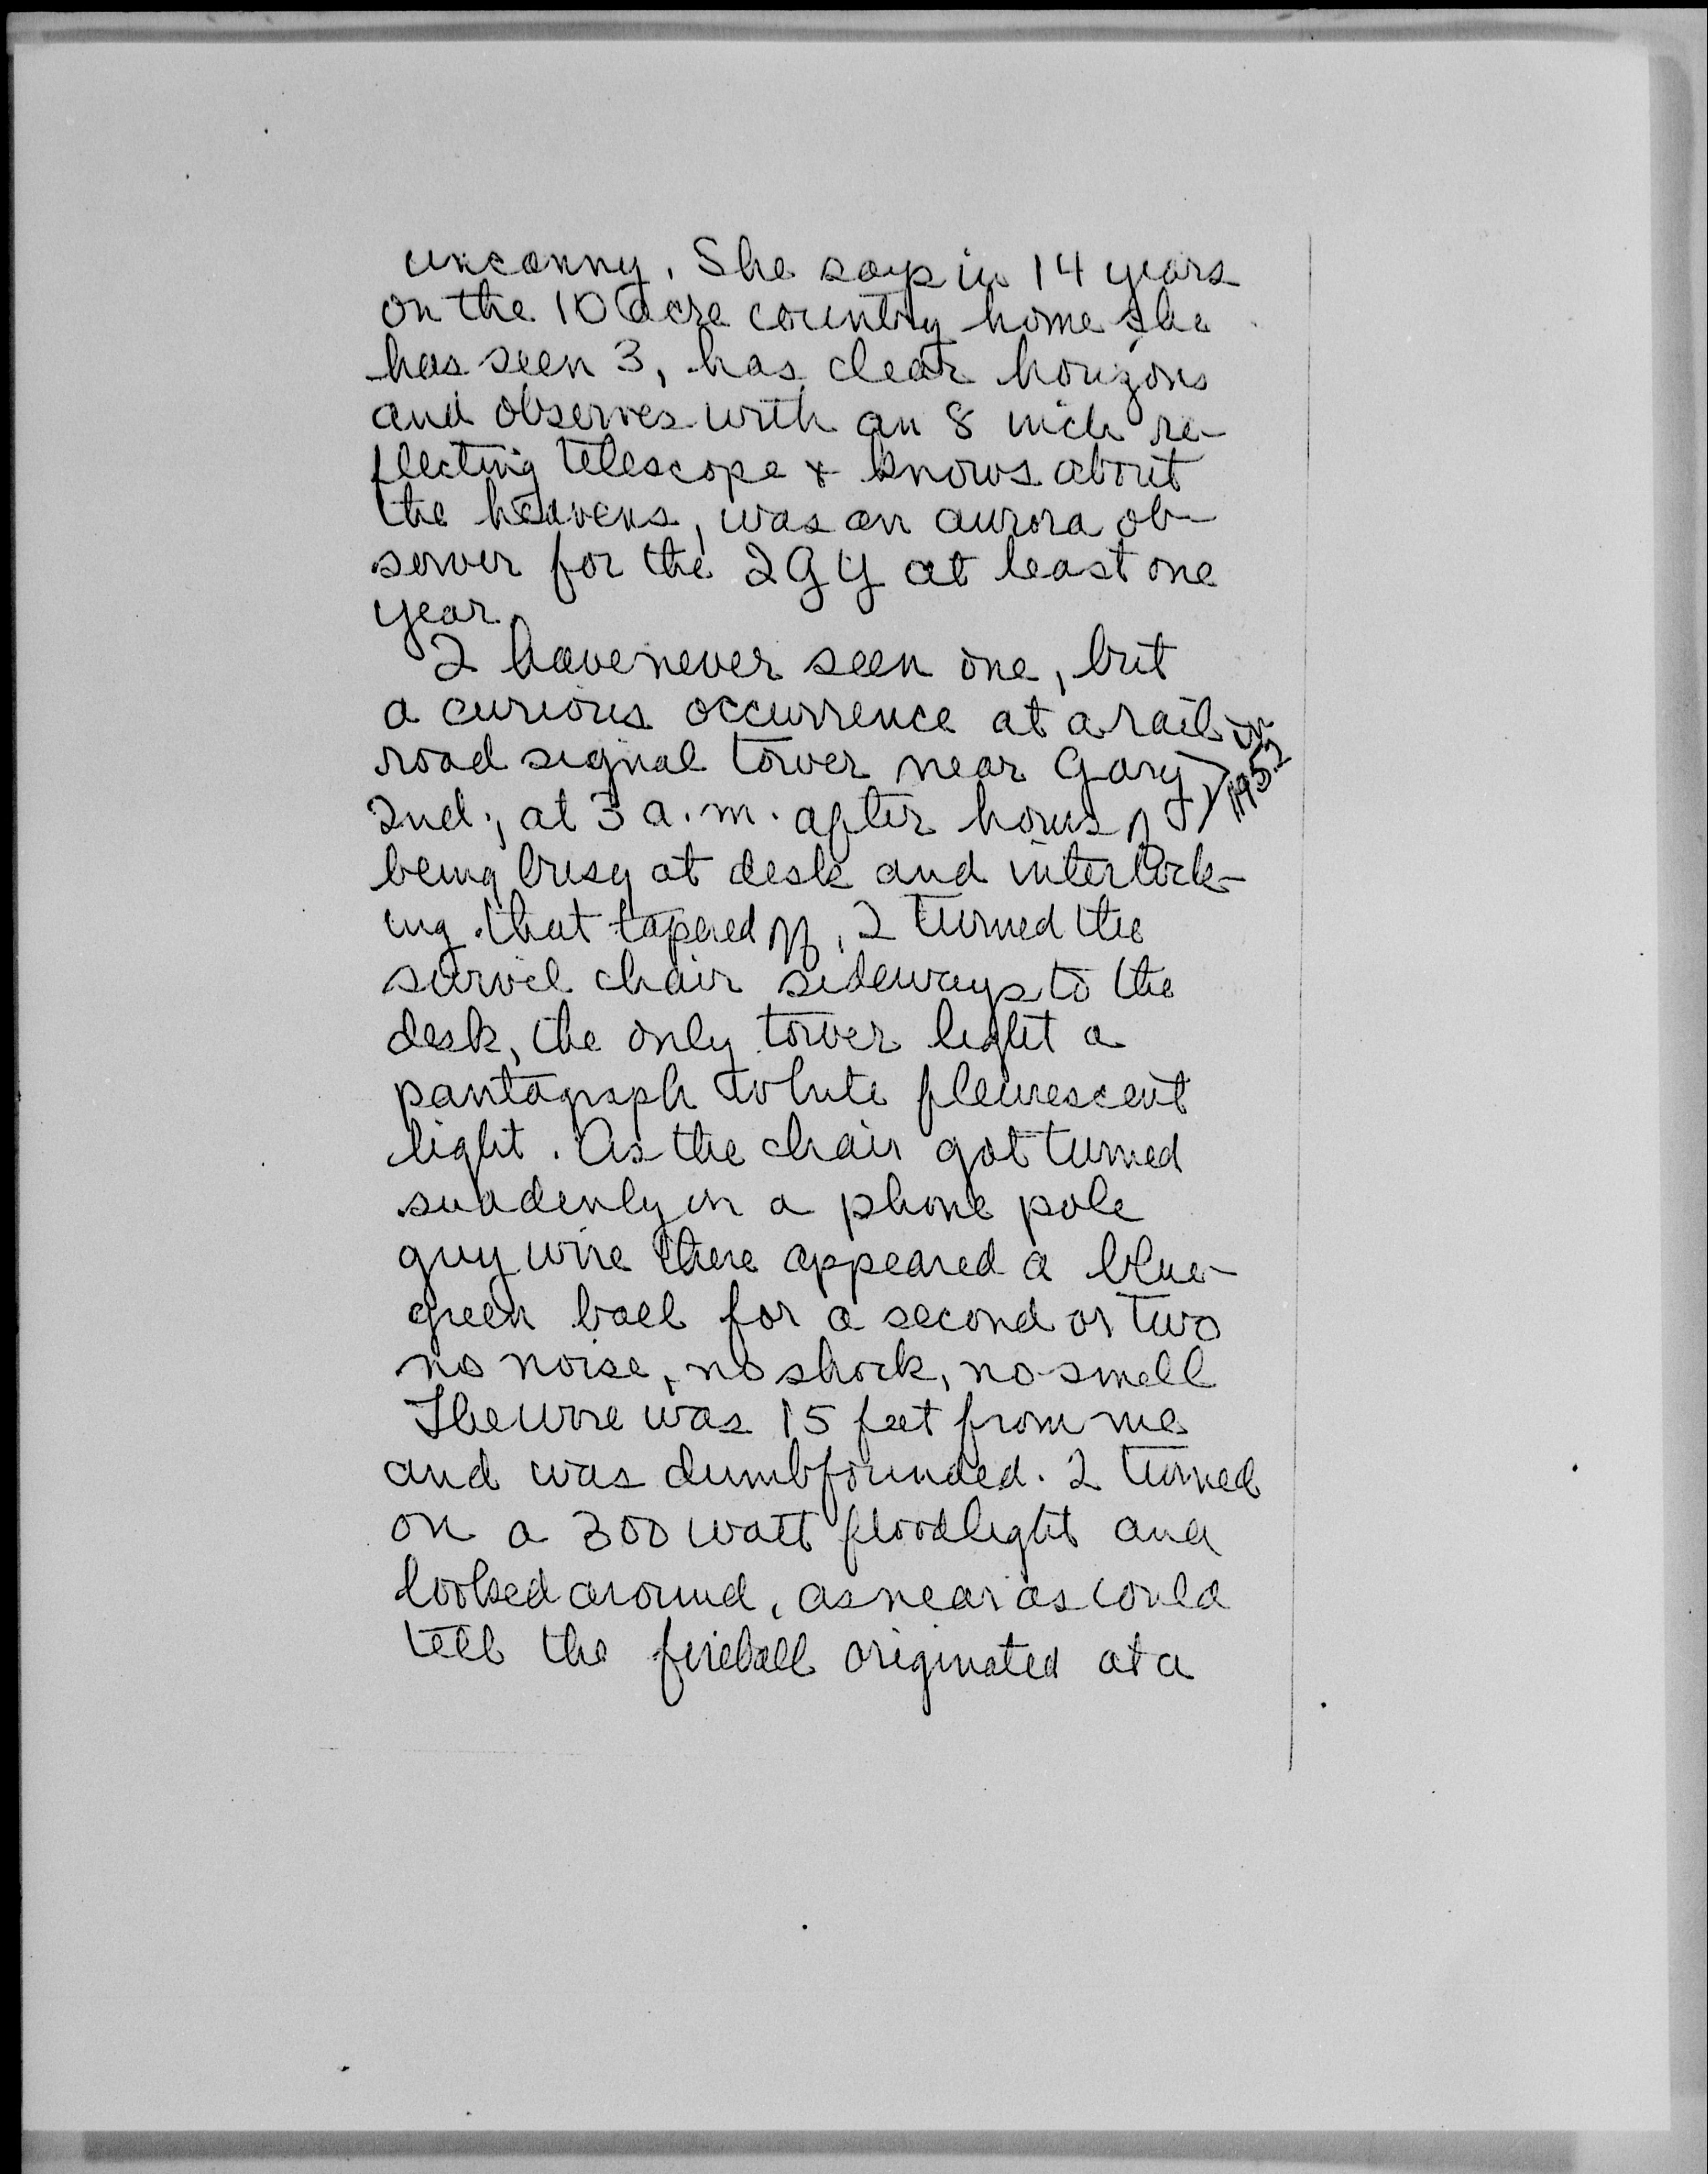 uncanny. She says in 14 years
on the 10 acre country home she
has seen 3, has clear horizons
and observes with an 8 inch re-
flecting telescope & knows about
the heavens, was an aurora ob-
server for the IGY at least one
year.
I have never seen one, but
a curious occurrence at a rail-
road signal tower near Gary
in 1952
Ind., at 3 a.m. after hours of
being busy at desk and interlock-
ing that tapered off, I turned the
swivel chair sideways to the
desk, the only tower light a
pantagraph white fleurescent
light. As the chair got turned
suddenly on a phone pole
guy wire there appeared a blue-
green ball for a second or two
no noise, no shock, no smell
The wire was 15 feet from me
and was dumbfounded. I turned
on a 300 watt floodlight and
looked around, as near as could
tell the fireball originated at a